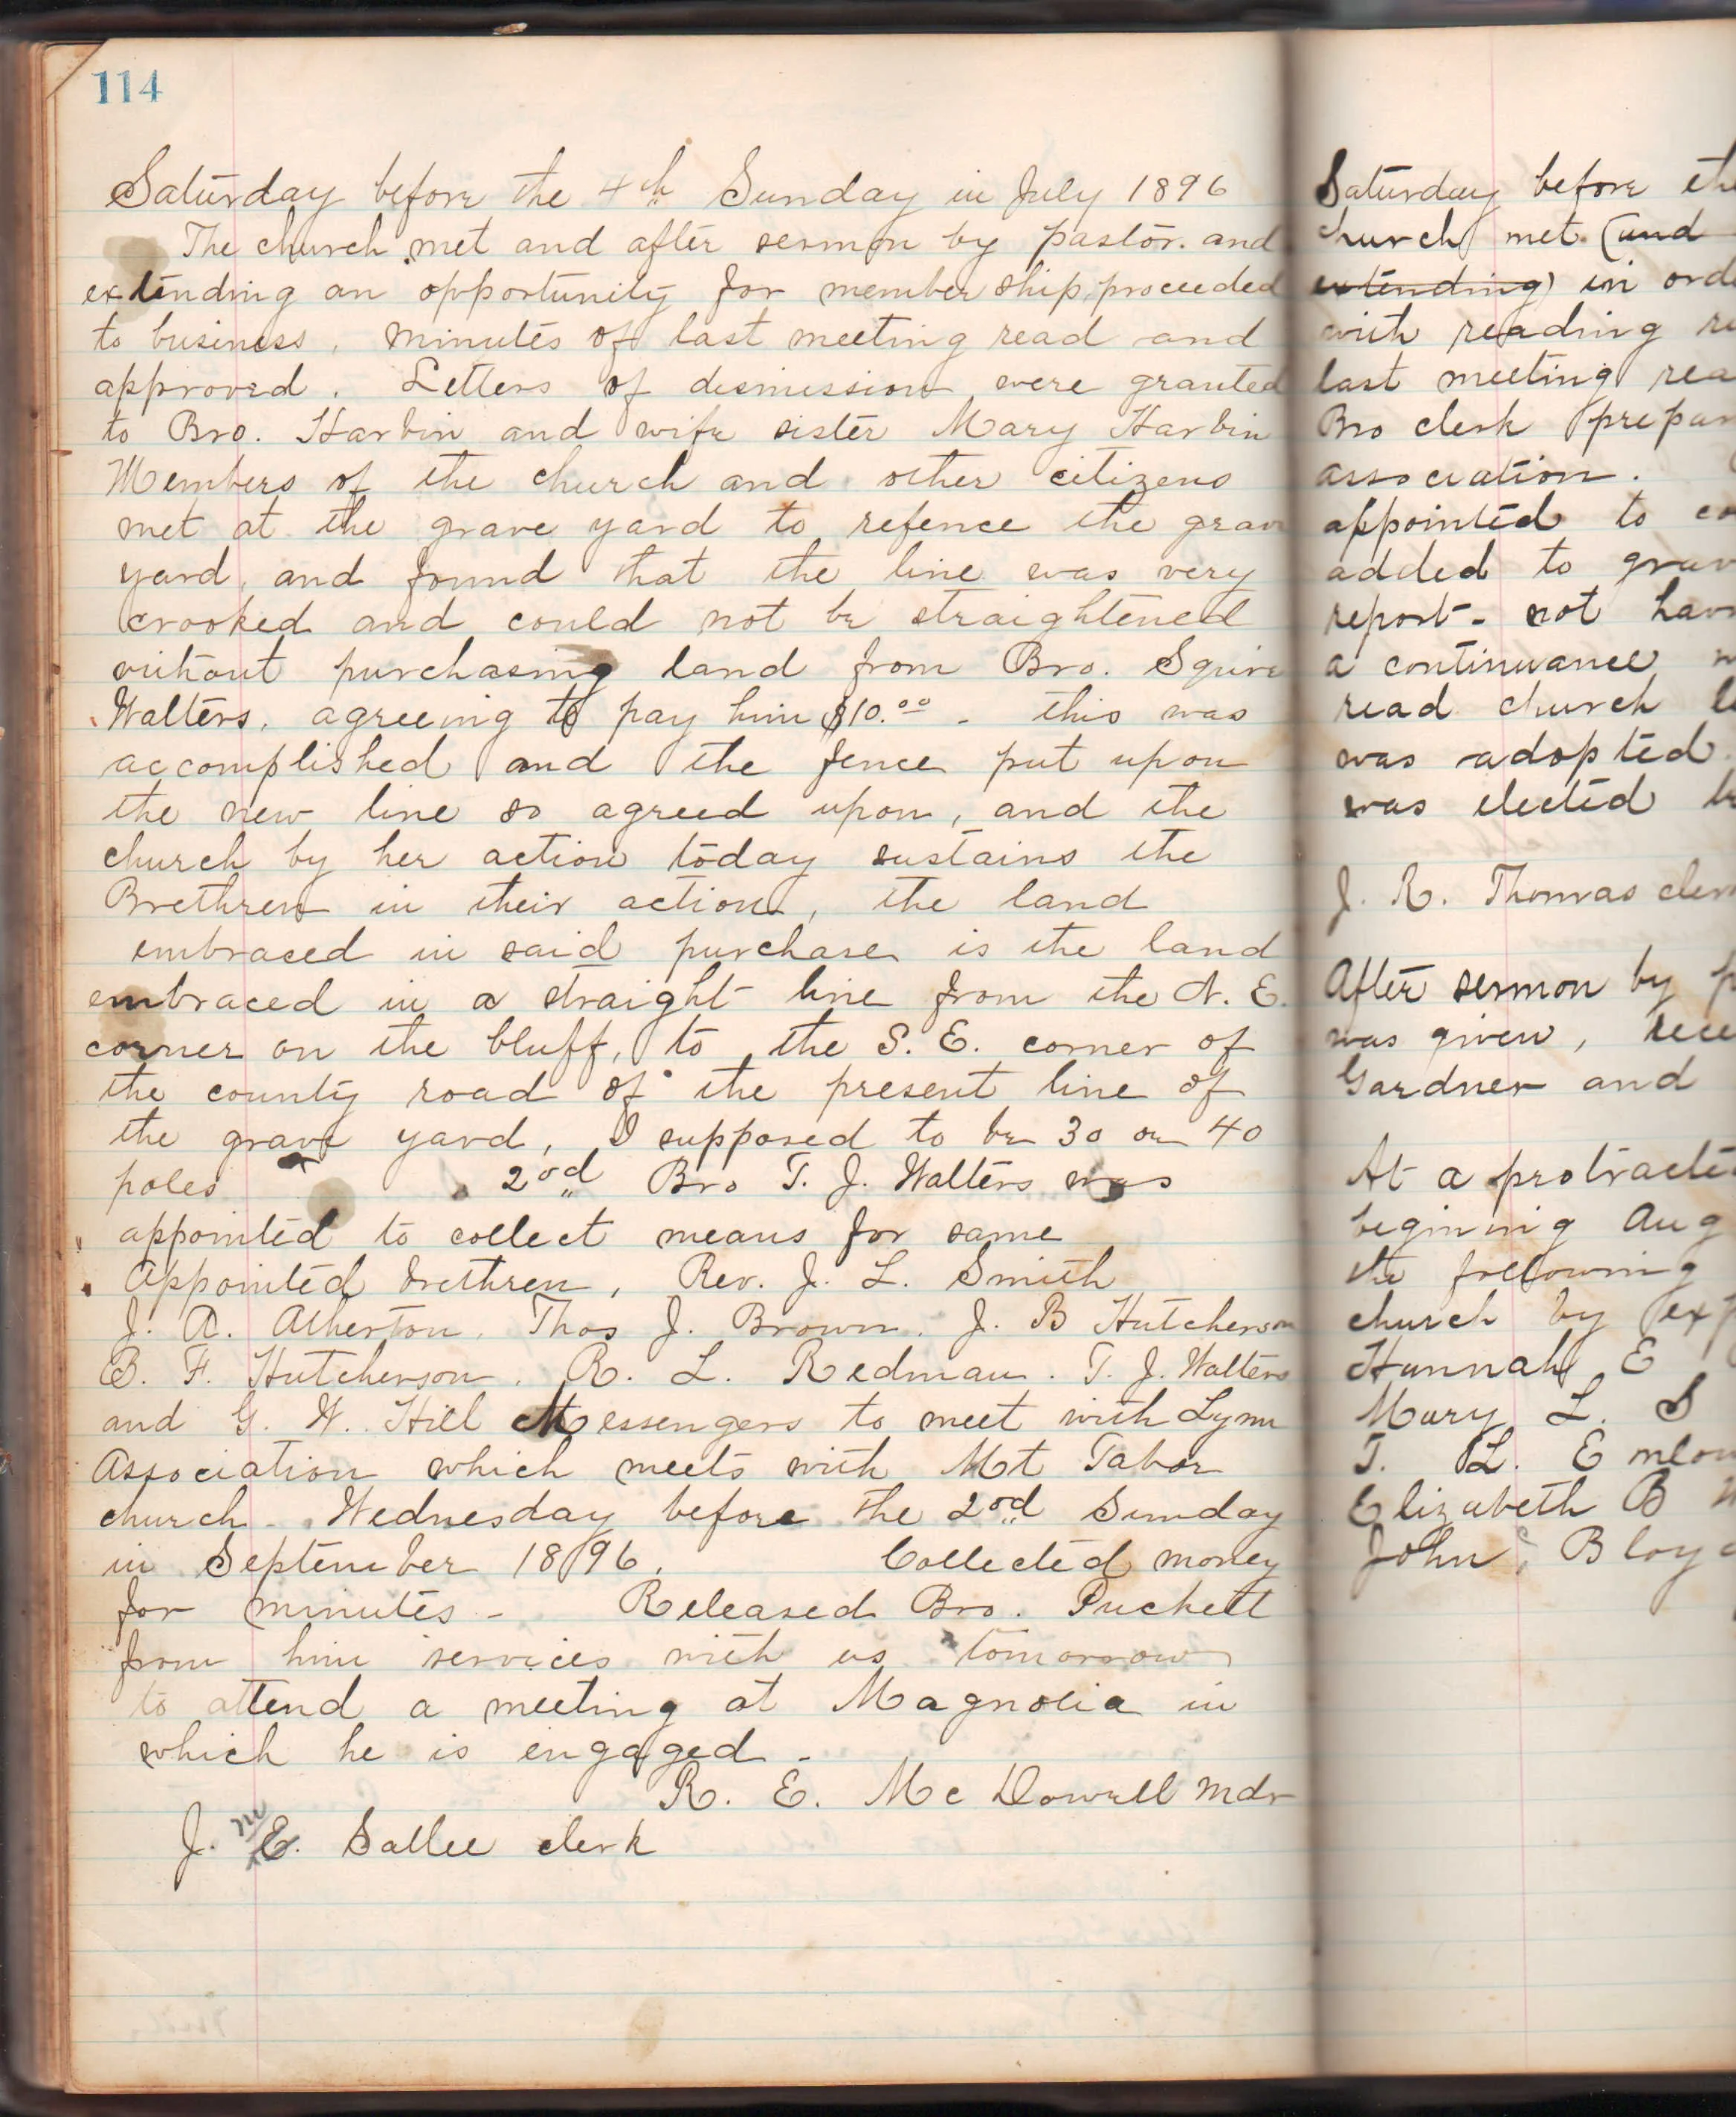 114
Saturday before the 4th Sunday in July 1896
The church met and after sermon by pastor. and
extending an opportunity for member ship, proceeded
to business, minutes of last meeting read and
approved. Letters of dismission were granted
to Bro. Harbin and wife sister Mary Harbin
Members of the church and other citizens
met at the grave yard to refence the grave
yard, and found that the line was very
crooked and could not be straightened
without purchasing land from Bro. Squire
Walters, agreeing to pay him $10.00 - this was
accomplished and the fence put upon
the new line so agreed upon, and the
church by her action today sustains the
Brethren in their action, the land
embraced in said purchase is the land
embraced in a straight line from the N. E.
corner on the bluff, to the S. E. corner of
the county road of the present line of
the grave yard, I supposed to be 30 or 40
poles 2nd Bro T. J. Walters was
appointed to collect means for same
Appointed brethren, Rev. J. L. Smith
J. A. Atherton, Thos J. Brown, J. B Hutcherson
B. F. Hutcherson, R. L. Redman. T. J. Walters
and G. W. Hill Messengers to meet with Lynn
Association which meets with Mt Tabor
church - Wednesday before the 2nd Sunday
in September 1896. Collected money
for minutes - Released Bro. Puckett
from him services with us tomorrow
to attend a meeting at Magnolia in
which he is engaged -
R. E. Mc Dowell Mdr
J. M E. Sallee clerk
Saturday before the
church met (and
extending) in orde
with reading
last meeting rea
Bro clerk prepar
association.
appointed to co
added to grav
report - not hav
a continuance
read church le
was adopted
was elected
J. R. Thomas cler
After sermon by p
was given, rece
Gardner and
At a protracte
begining Aug
the following
church by exp
Hannah E
Mary L. S
T. L. Enlow
Elizabeth B
John Bloy